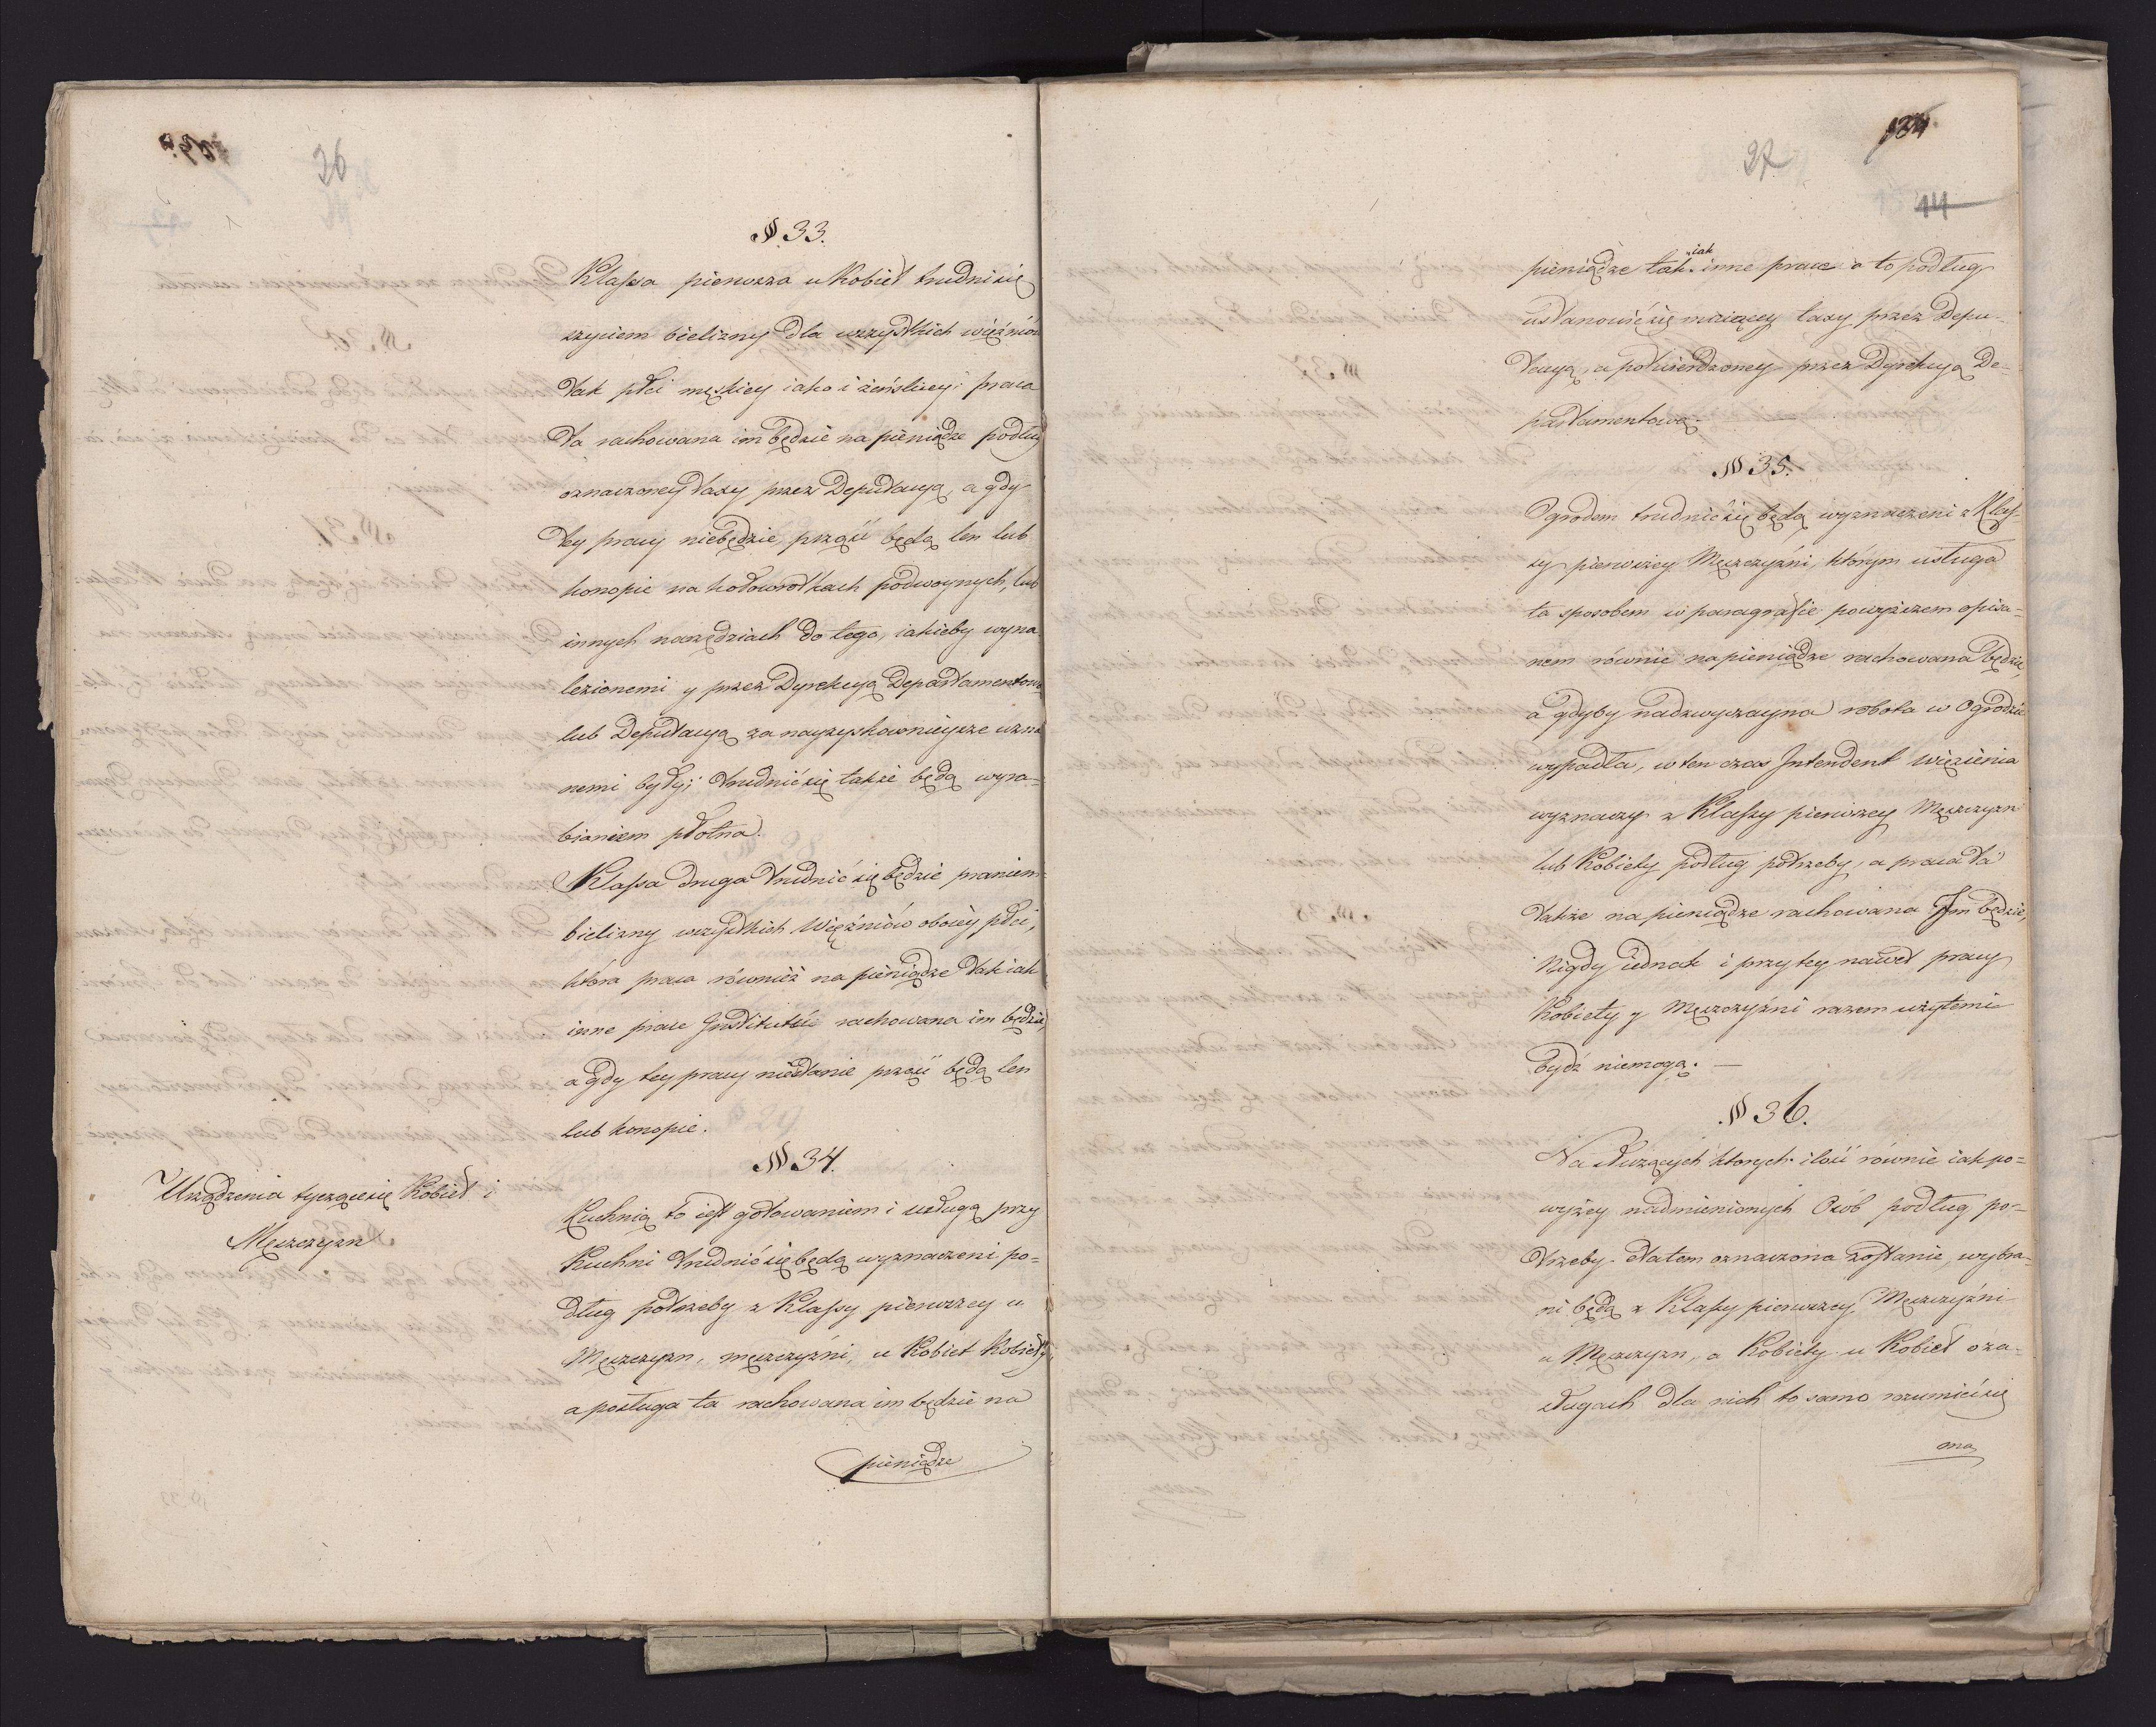 26
§. 33.
Klassa pierwsza u Kobiet trudni się
szyciem bielizny dla wszystkich więźniów
tak płci męskiey iako i żeńskiey; praca
ta rachowana im będzie na pieniądze podług
oznaczoney taxy przez Deputacyą, a gdy
tey pracy niebędzie, prząść będą len lub
konopie na kołowrotkach podwoynych, lub
innych narzędziach do tego, iakieby wyna
lezionemi y przez Dyrekcyą Departamentową
lub Deputacyą za nayzyskownieysze uzna
nemi były; trudnić się także będą wyra-
bianiem płótna.
Klassa druga trudnić się będzie praniem
bielizny wszystkich Więźniów oboiey płci,
która praca również na pieniądze tak iak
inne prace Institutu rachowana im będzie
a gdy tey pracy niestanie prząść będą len
lub konopie.
§ 34.
Urządzenia tyczące się Kobiet i
Męzczyzn
Kuchnią to iest gotowaniem i usługą przy
Kuchni trudnić się będą wyznaczeni po-
dług potrzeby z Klassy pierwszey u
Męzczyzn, męzczyźni, u Kobiet Kobiety,
a posługa ta rachowana im będzie na
pieniądze
134
27
14
pieniądze tak iak inne prace a to podług
ustanowić się maiącey taxy przez Depu-
tacyą, a potwierdzoney przez Dyrekcyą De-
partamentową.
§ 35.
Ogrodem trudnić się będą wyznaczeni z Klas-
sy pierwszey Męzczyźni, którym usługa
ta sposobem w paragrafie powyższem opisa-
nem równie na pieniądze rachowana będzie,
a gdyby nadzwyczayna robota w Ogrodzie
wypadła, w ten czas Intendent więzienia
wyznaczy z Klassy pierwszey Męzczyzn
lub Kobiety podług potrzeby, a praca ta
także na pieniądze rachowana Im będzie,
Nigdy iednak i przy tey nawet pracy
Kobiety y Męzczyźni razem użytemi
bydź niemogą. —
§ 36.
Na służących których ilość równie iak po-
wyżey nadmienionych Osób podług po-
trzeby etatem oznaczona zostanie, wybra-
ni będą z Klassy pierwszey Męzczyźni
u Męzczyzn, a Kobiety u Kobiet o za-
sługach dla nich to samo rozumieć się
ma